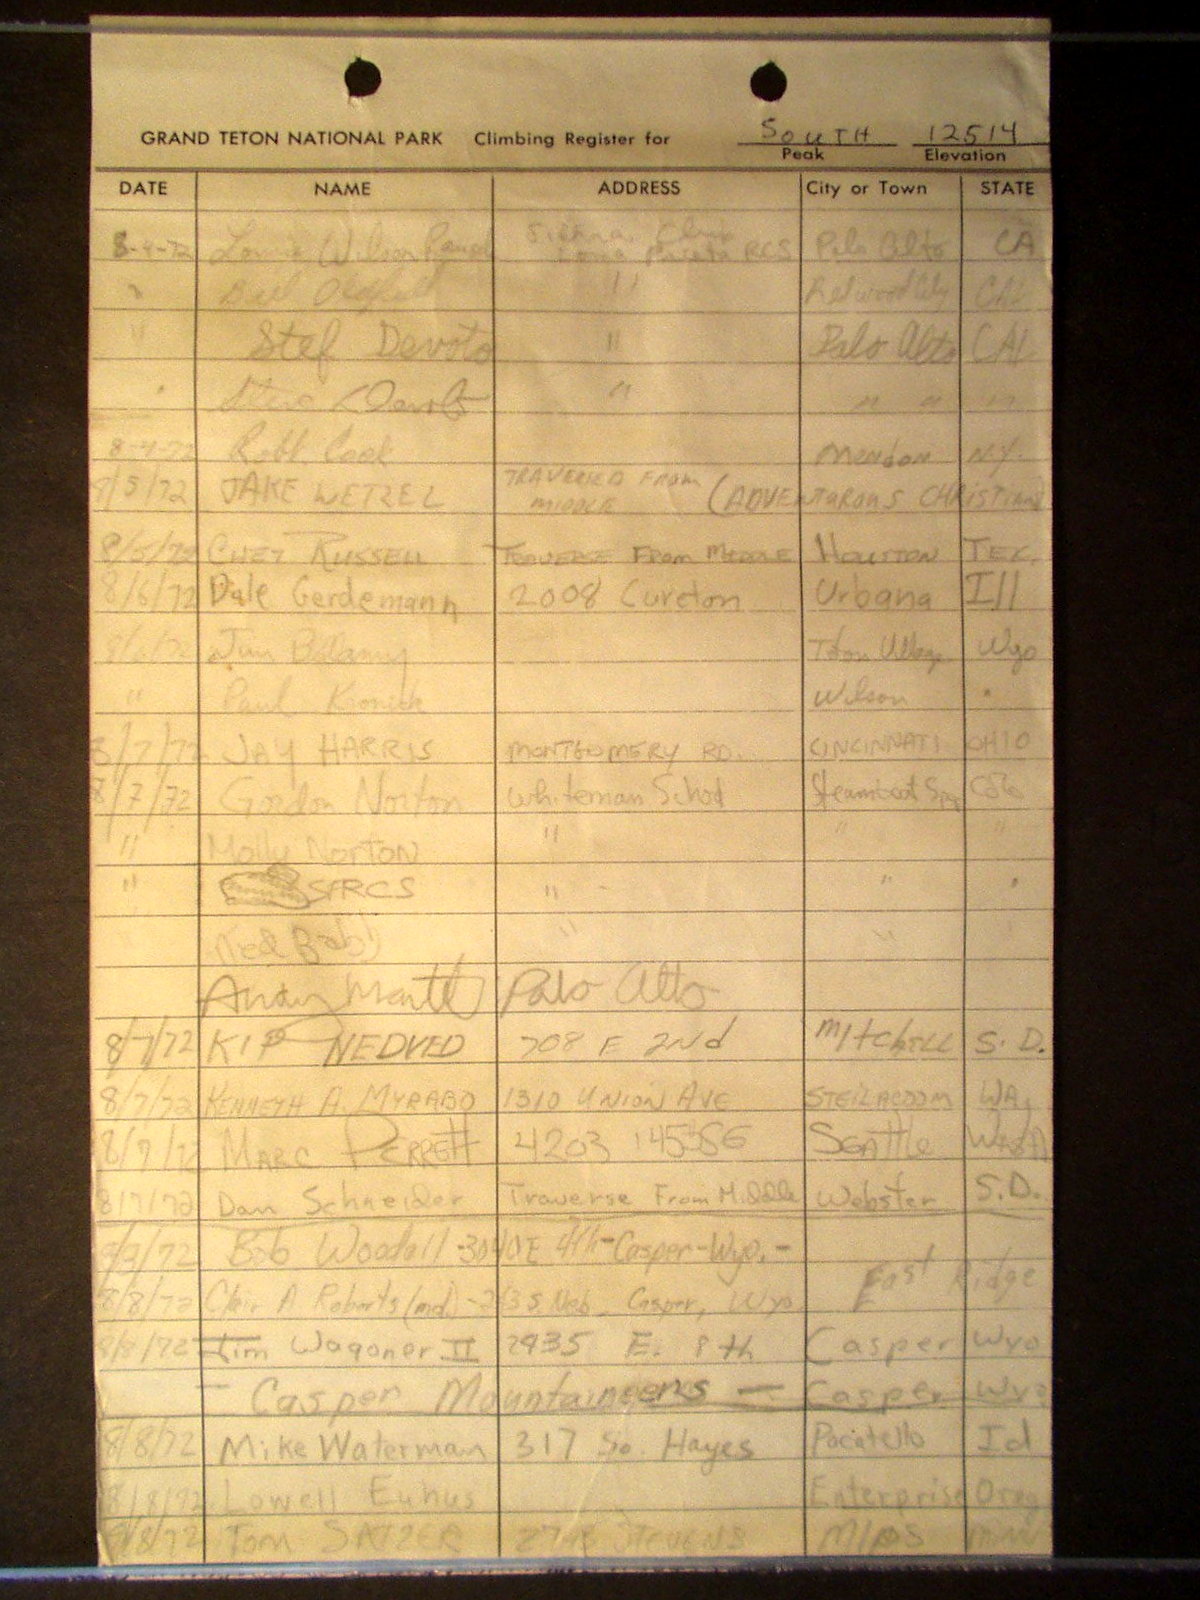 GRAND TETON NATIONAL PARK Climbing Register for SOUTH 12514
Peak Elevation
DATE NAME ADDRESS City or Town STATE
8-4-72 Wilson Sierra Club Loma Prieta RCS Palo Alto CA
" " Redwood City CAL
" Stef Devoto " Palo Alto CAL
" Steve " " " "
8-4-72 Robt. Cook Mendon NY.
8/5/72 JAKE WETZEL TRAVERSED FROM MIDDLE (ADVENTUROUS CHRISTIANS
8/5/72 CHET RUSSELL TRAVERSE FROM MIDDLE HOUSTON TEX.
8/6/72 Dale Gerdemann 2008 Cureton Urbana Ill
8/6/72 Jim Teton Village Wyo
" Paul Kronick Wilson "
8/7/72 JAY HARRIS MONTGOMERY RD. CINCINNATI OHIO
8/7/72 Gordon Norton Whiteman School Steamboat Spg Colo
" Molly Norton " " "
" SFRCS " " "
" " "
Andy Palo Alto
8/7/72 KIP NEDVED 708 E 2nd Mitchell S. D.
8/7/72 KENNETH A. MYRABO 1310 UNION AVE STEILACOOM WA.
8/7/72 MARC PERRETT 4203 145 SE SEATTLE WASH
8/7/72 Dan Schneider Traverse From Middle Webster S.D.
8/8/72 Bob Woodall - 3040 E 4th - Casper - Wyo. -
8/8/72 Clair A Roberts (md) - S. Neb. Casper, Wyo. East Ridge
8/8/72 Jim Wagoner II 2935 E. 8th Casper Wyo
- Casper Mountaineers - Casper Wyo
8/8/72 Mike Waterman 317 So. Hayes Pocatello Id
8/8/72 Lowell Euhus Enterprise Oreg
8/8/72 TOM SATZER STEVENS MLPS MINN